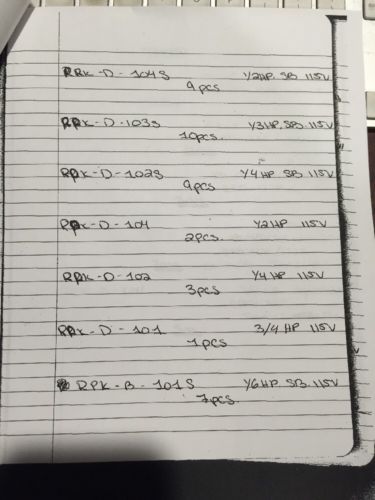 RRK-D-104S Y2HP SB 115V
9pcs
RPK-D-103S Y3HP.SB. 115V
10pcs.
RPK-D-102S Y4HP SB 115V
9pcs
RPK-D-104 Y2HP 115V
2pcs.
RPK-D-102 Y4HP 115V
3pcs
RPK-D-101 3/4 HP 115V
1pcs
RPK-B-101S Y6HP SB 115V
7pcs.